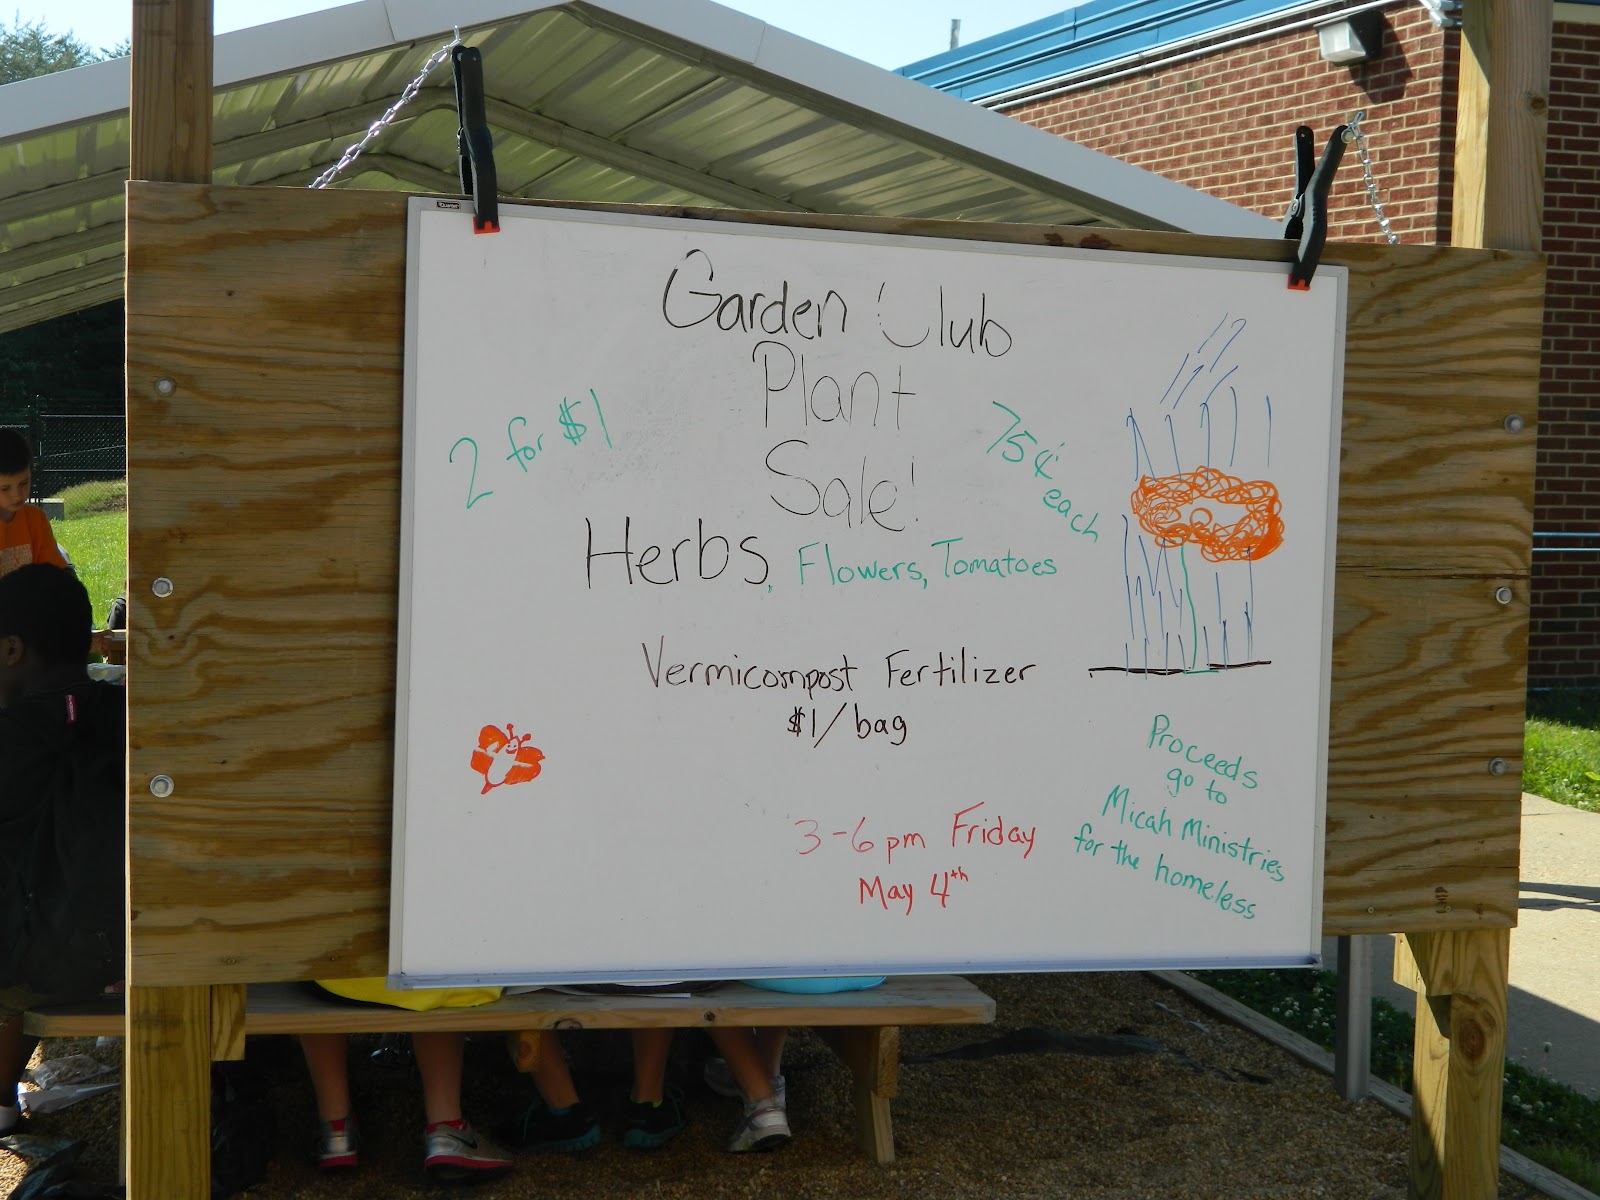 Garden Club
Plant
Sale!
2 for $1
75¢ each
Herbs, Flowers, Tomatoes
Vermicompost Fertilizer
$1/bag
3-6pm Friday
May 4th
Proceeds
go to
Micah Ministries
for the homeless